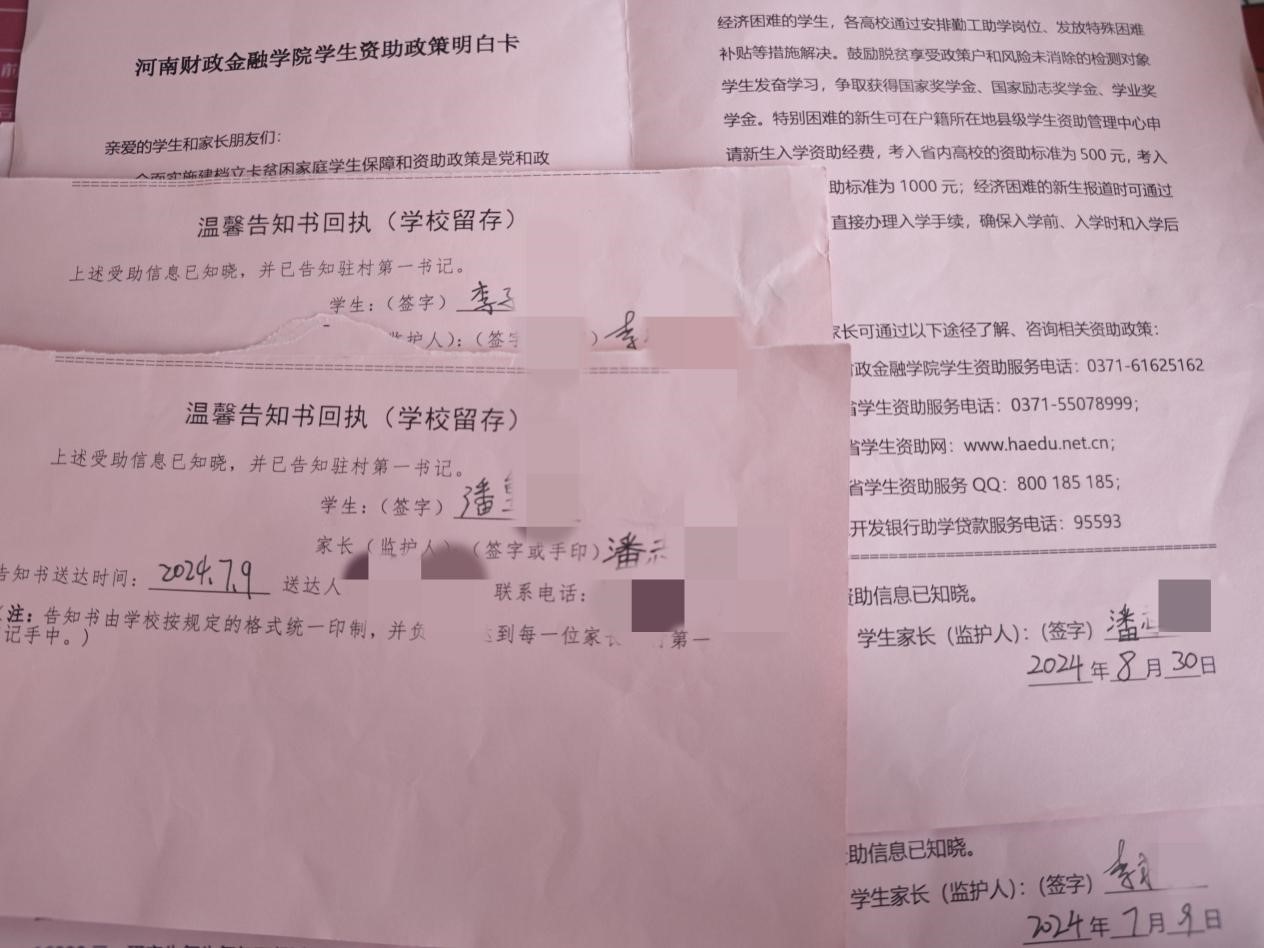 河南财政金融学院学生资助政策明白卡
亲爱的学生和家长朋友们：
全面实施建档立卡贫困家庭学生保障和资助政策是党和政
经济困难的学生，各高校通过安排勤工助学岗位、发放特殊困难
补贴等措施解决。鼓励脱贫享受政策户和风险未消除的检测对象
学生发奋学习，争取获得国家奖学金、国家励志奖学金、学业奖
学金。特别困难的新生可在户籍所在地县级学生资助管理中心申
请新生入学资助经费，考入省内高校的资助标准为 500 元，考入
助标准为 1000 元；经济困难的新生报道时可通过
直接办理入学手续，确保入学前、入学时和入学后
家长可通过以下途径了解、咨询相关资助政策：
政金融学院学生资助服务电话：0371-61625162
省学生资助服务电话：0371-55078999；
省学生资助网：www.haedu.net.cn；
省学生资助服务 QQ：800 185 185；
开发银行助学贷款服务电话：95593
资助信息已知晓。
学生家长（监护人）：（签字）潘
2024 年 8 月 30 日
助信息已知晓。
学生家长（监护人）：（签字）李
2024 年 7 月 9 日
温馨告知书回执（学校留存）
上述受助信息已知晓，并已告知驻村第一书记。
学生：（签字）李
监护人）：（签字 ）李
温馨告知书回执（学校留存）
上述受助信息已知晓，并已告知驻村第一书记。
学生：（签字）潘
家长（监护人） （签字或手印）潘
告知书送达时间：2024.7.9 送达人 联系电话：
（注：告知书由学校按规定的格式统一印制，并负 达到每一位家长 第一
记手中。）